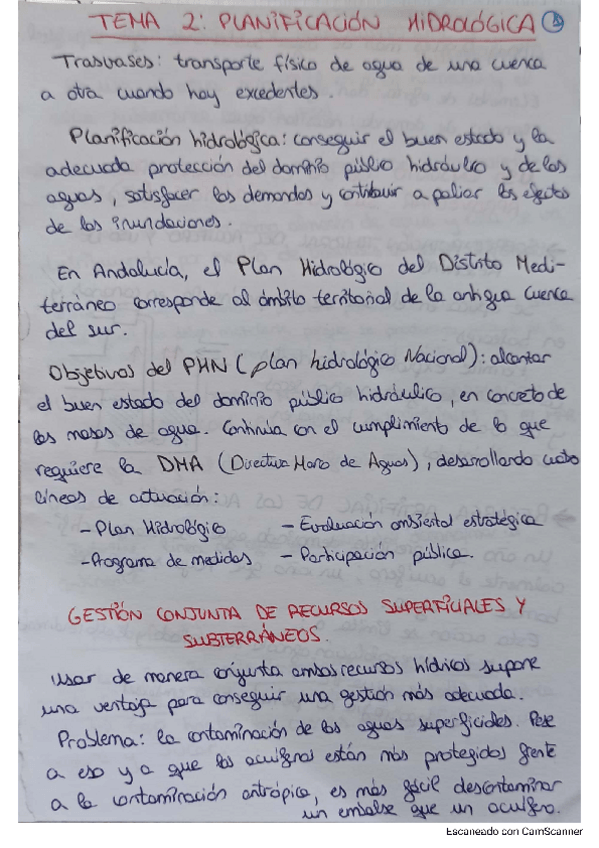 TEMA 2: PLANIFICACIÓN HIDROLÓGICA
Trasvases: transporte físico de agua de una cuenca
a otra cuando hay excedentes.
Planificación hidrológica: conseguir el buen estado y la
adecuada protección del dominio público hidráulico y de las
aguas, satisfacer las demandas y contribuir a paliar los efectos
de las inundaciones.
En Andalucía, el Plan Hidrológico del Distrito Medi-
terráneo corresponde al ámbito territorial de la antigua cuenca
del sur.
Objetivos del PHN (plan hidrológico Nacional): alcanzar
el buen estado del dominio público hidráulico, en concreto de
las masas de agua. Continúa con el cumplimiento de lo que
requiere la DMA (Directiva Marco de Aguas), desarrollando cuatro
líneas de actuación:
- Plan Hidrológico - Evaluacion ambiental estratégica
- Programa de medidas - Participación pública.
GESTIÓN CONJUNTA DE RECURSOS SUPERFICIALES Y
SUBTERRÁNEOS.
Usar de manera conjunta ambos recursos hídricos supone
una ventaja para conseguir una gestión más adecuada.
Problema: la contaminación de las aguas superficiales. Pese
a eso y a que los acuíferos están más protegidos frente
a la contaminación antrópica, es más fácil descontaminar
un embalse que un acuífero.
Escaneado con CamScanner